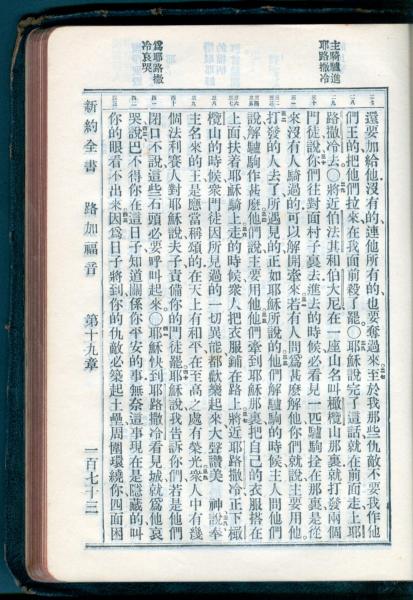 主騎驢進
耶路撒冷
爲耶路撒
冷哀哭
還要加給他、沒有的、連他所有的、也要奪過來至於我那些仇敵不要我作他
們王的、把他們拉來、在我面前殺了罷○耶穌說完了這話就在前面走上耶
路撒冷去○將近伯法其和伯大尼在一座山名叫橄欖山那裏、就打發兩個
門徒說、你們往對面村子裏去、進去的時候、必看見一匹驢駒拴在那裏、是從
來沒有人騎過的、可以解開牽來若有人問爲甚麼解他、你們就說、主要用他
打發的人去了、所遇見的、正如耶穌所說的他們解驢駒的時候、主人問他們
說、解驢駒作甚麼他們說、主要用他他們牽到耶穌那裏、把自己的衣服搭在
上面、扶着耶穌騎上走的時候、衆人把衣服鋪在路上將近耶路撒冷、正下橄
欖山的時候、衆門徒因所見過的一切異能、都歡樂起來、大聲讚美 神說奉
主名來的王、是應當稱頌的、在天上有和平、在至高之處有榮光衆人中有幾
個法利賽人對耶穌說、夫子、責備你的門徒罷耶穌說、我告訴你們、若是他們
閉口不說、這些石頭必要呼叫起來○耶穌快到耶路撒冷、看見城、就爲他哀
哭說、巴不得你在這日子、知道關係你平安的事、無奈這事現在是隱藏的、叫
你的眼看不出來因爲日子將到、你的仇敵必築起土壘、周圍環繞你、四面困
新約全書 路加福音 第十九章 一百七十三